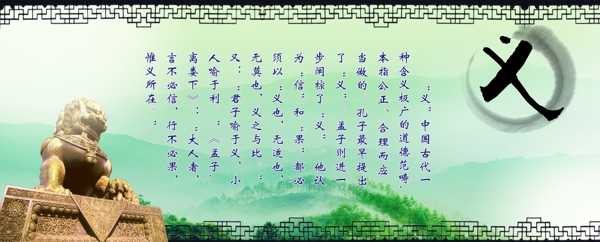 义
：义：中国古代一
种含义极广的道德范畴.
本指公正、合理而应
当做的 孔子最早提出
了：义： 孟子则进一
步阐棕了：义： 他认
为：信：和：果：都必
须以：义也，无适也，
无莫也，义之与比：.
又：：君子喻于义，小
人喻于利：《孟子·
离娄下》：：大人者，
言不必信，行不必果，
惟义所在 ：